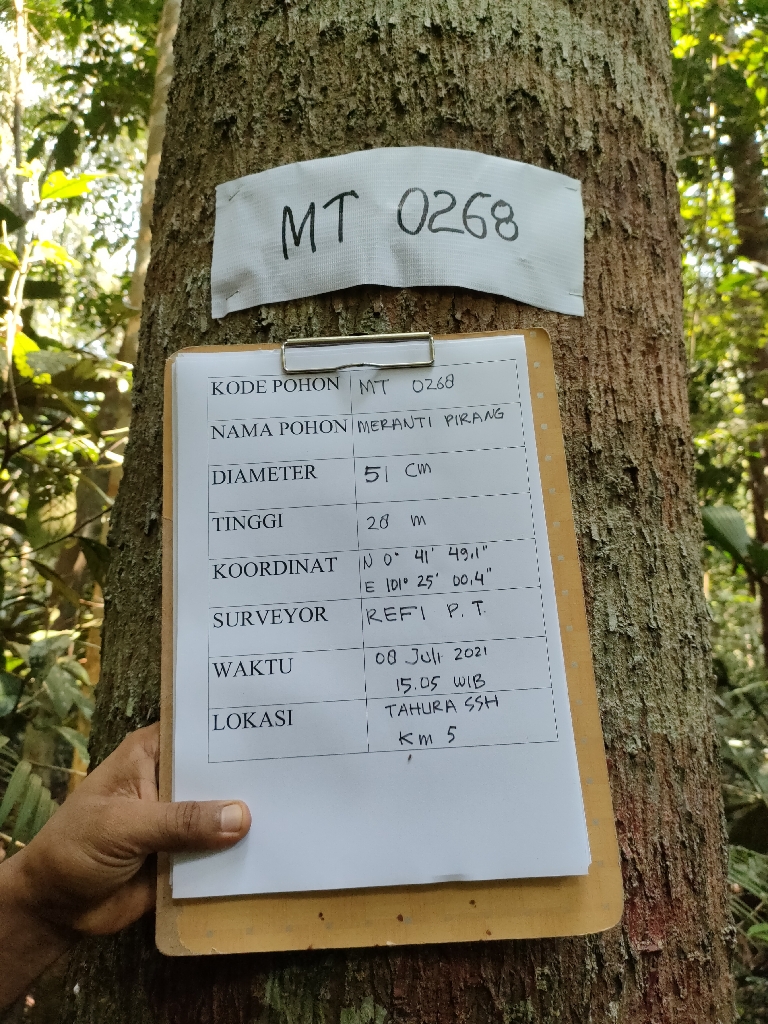 MT 0268
KODE POHON MT 0268
NAMA POHON MERANTI PIRANG
DIAMETER 51 cm
TINGGI 28 m
KOORDINAT N 0° 41' 49,1"
E 101° 25' 00,4"
SURVEYOR REFI P.T.
WAKTU 08 Juli 2021
15.05 WIB
LOKASI TAHURA SSH
Km 5